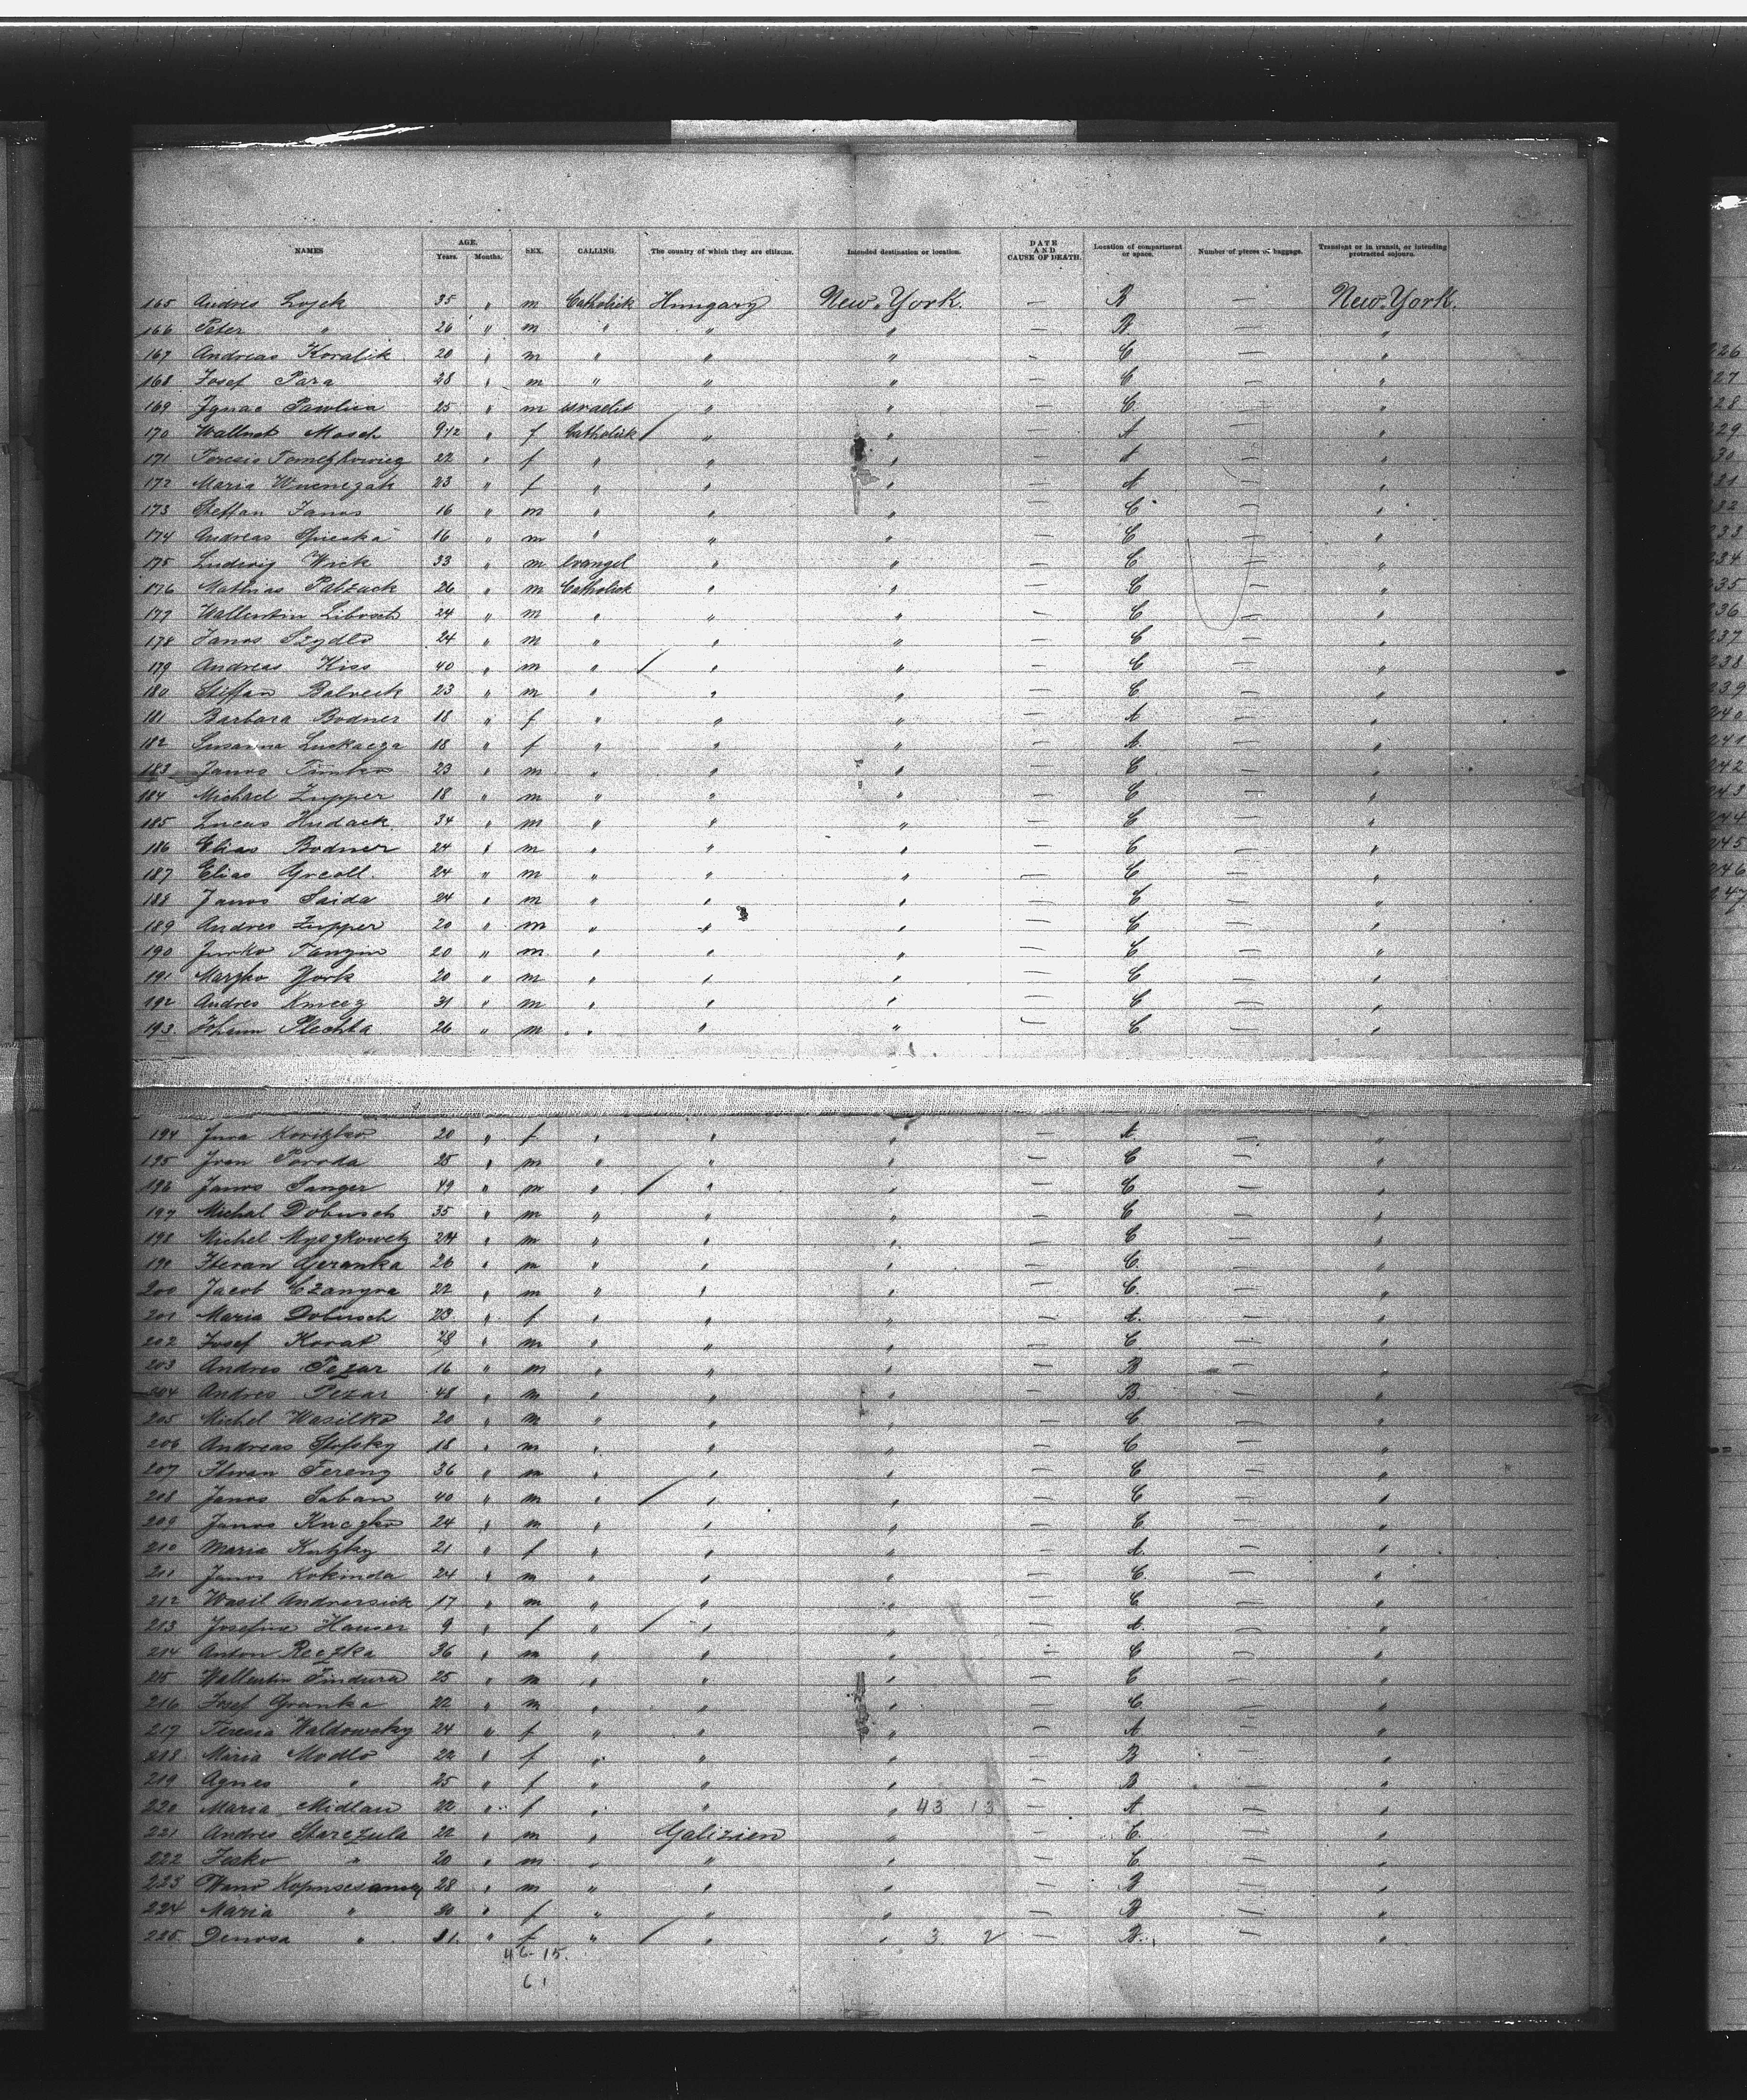 NAMES AGE. Years. Months. SEX. CALLING. The country of which they are citizens. Intended destination or location. DATE AND CAUSE OF DEATH. Location of compartment or space. Number of pieces of baggage. Transient or in transit, or intending protracted sojourn.
165 Andres Lojek 35 " m Catholick Hungary New-York. — B — New-York.
166 Peter " 26 " m " " " — B. — "
167 Andreas Koralik 20 " m " " " — C — "
168 Josef Para 28 " m " " " — C — "
169 Ignac Pawlica 25 " m israelit " " — C — "
170 Mosch " f Catholick " " — A — "
171 Teresia 22 " f " " " — A — "
172 Maria 23 " f " " " — A — "
173 Steffan Janos 16 " m " " " — C — "
174 Andreas 16 " m " " " — C — "
175 Ludwig Wick 33 " m evangel " " — C — "
176 Mathias Palzuck 26 " m Catholick " " — C — "
177 Wallentin Libosch 24 " m " " " — C — "
178 Janos Szydlo 24 " m " " " — C — "
179 Andreas Kiss 40 " m " " " — C — "
180 Steffan Balveck 23 " m " " " — C — "
181 Barbara Bodner 18 " f " " " — A — "
182 Susanna Luckacza 18 " f " " " — A. — "
183 Janos Timko 23 " m " " " — C — "
184 Michael Zupper 18 " m " " " — C — "
185 Lucas Hudack 34 " m " " " — C — "
186 Elias Bodner 24 " m " " " — C — "
187 Elias Greoll 24 " m " " " — C — "
188 Janos Saida 24 " m " " " — C — "
189 Andres Zupper 20 " m " " " — C — "
190 Jurko Tanzin 20 " m " " " — C — "
191 Marzko York 20 " m " " " — C — "
192 Andres Kmecz 31 " m " " " — C — "
193 Johann Plechta 26 " m " " " — C — "
194 Jura Koritzko 20 " f " " " — A — "
195 Ivan Poroda 25 " m " " " — C — "
196 Janos Sanger 49 " m " " " — C — "
197 Michal Dobusch 35 " m " " " — C — "
198 Michel Myszkowetz 24 " m " " " — C — "
199 Istvan Geranka 26 " m " " " — C. — "
200 Jacob Czangva 22 " m " " " — C. — "
201 Maria Dobusch 23 " f " " " — A. — "
202 Josef Korat 28 " m " " " — C — "
203 Andres Pezar 16 " m " " " — B — "
204 Andres Pezar 48 " m " " " — B — "
205 Michel Wasilko 20 " m " " " — C — "
206 Andreas Stofsky 18 " m " " " — C — "
207 Istvan Ferenz 36 " m " " " — C — "
208 Janos Saban 40 " m " " " — C — "
209 Janos Knezko 24 " m " " " — C — "
210 Maria Kutzky 21 " f " " " — A. — "
211 Janos Kokinda 24 " m " " " — C. — "
212 Wasil Andrersick 17 " m " " " — C — "
213 Josefina Hauser 9 " f " " " — A. — "
214 Anton Reczka 36 " m " " " — C — "
215 Wallentin Findura 25 " m " " " — C — "
216 Josef Granka 22 " m " " " — C — "
217 Teresia Waldowsky 24 " f " " " — A — "
218 Maria Modlo 22 " f " " " — B — "
219 Agnes " 25 " f " " " — B — "
220 Maria Midlan 22 " f " " " 43 13 — A — "
221 Andres Starczula 22 " m " Galizien " — C — "
222 Fesko " 20 " m " " " — C — "
223 28 " m " " " — B — "
224 Maria " 20 " f " " " — B — "
225 Denosa " 11. " f " " " 3. 2 — B. — "
46 15.
61